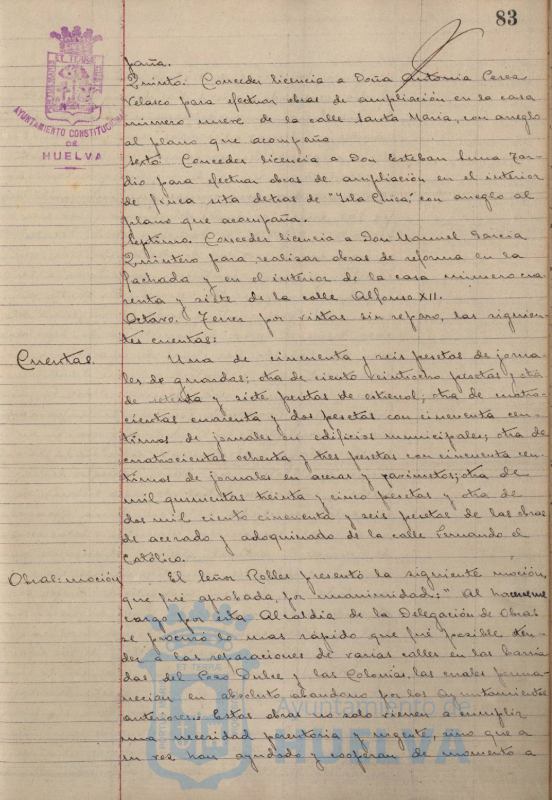 83
AYUNTAMIENTO CONSTITUCIONAL
DE
HUELVA
paña.
Quinto. Conceder licencia a Doña Antonia Perea
Velasco para efectuar obras de ampliación en la casa
número nueve de la calle Santa Maria, con arreglo
al plano que acompaña
Sexto. Conceder licencia a Don Esteban
para efectuar obras de ampliación en el interior
de finca sita detras de "Isla Chica", con arreglo al
plano que acompaña.
Septimo. Conceder licencia a Don Manuel Garcia
Quintero para realizar obras de reforma en la
fachada y en el interior de la casa número cua
renta y siete de la calle Alfonso XII.
Octavo. Tener por vistas sin reparo, las siguien-
tes cuentas:
Cuentas.
Una de cincuenta y seis pesetas de jorna-
les de guardas; otra de ciento veintiocho pesetas y otra
de setenta y siete pesetas de estiercol; otra de cuatro-
cientas cuarenta y dos pesetas con cincuenta cen-
timos de jornales en edificios municipales; otra de
cuatrocientas ochenta y tres pesetas con cincuenta cen-
timos de jornales en aceras y pavimetos; otra de
mil quinientas treinta y cinco pesetas y otra de
dos mil ciento cincuenta y seis pesetas de las obras
de acerado y adoquinado de la calle Fernando el
Católico.
Obras: moción
El Señor Robles presentó la siguiente moción,
que fué aprobada, por unanimidad: "Al hacerme
cargo por esta Alcaldia de la Delegación de Obras
se procuró lo mas rápido que fué posible aten-
der a las reparaciones de varias calles en las barria
das del Pozo Dulce y las Colonias, las cuales perma-
necian en absoluto abandono por los Ayuntamientos
anteriores. Estas obras no solo vienen a cumplir
una necesidad perentoria y urgente, sino que a
su vez han ayudado y cooperan de momento a
Ayuntamiento de
HUELVA